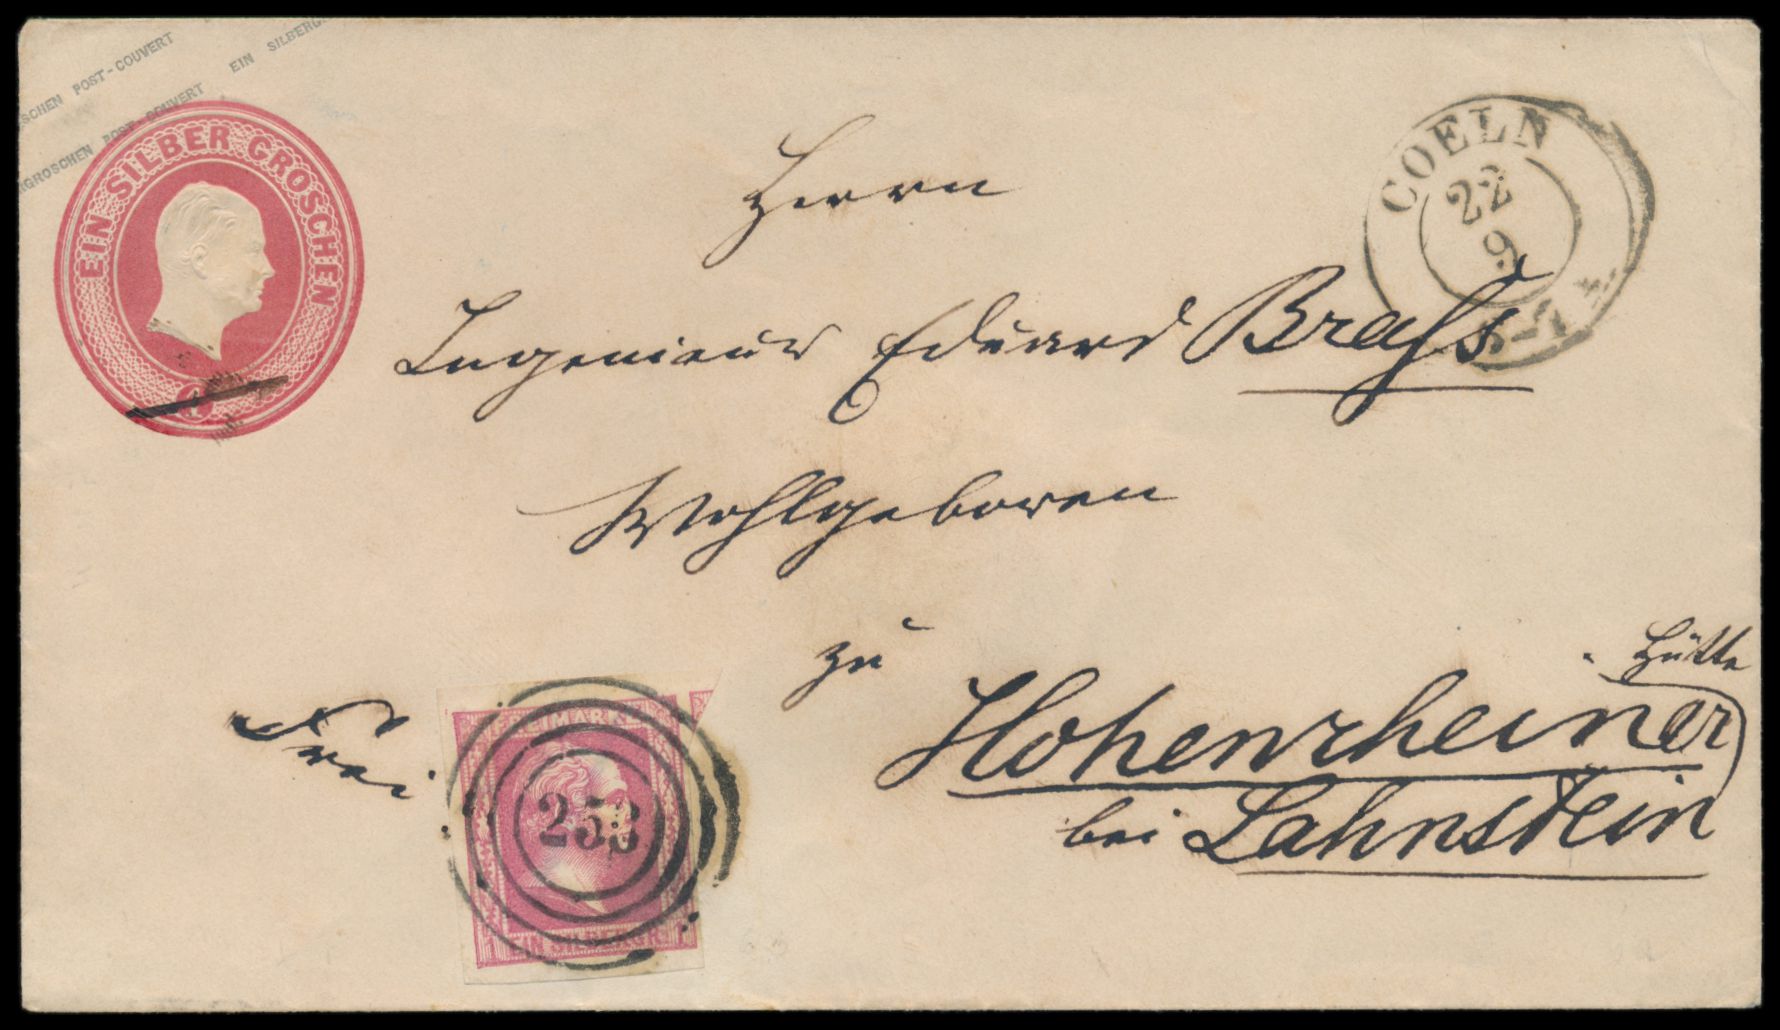 SCHEN POST-COUVERT
RGROSCHEN POST-COUVERT EIN SILBERG
EIN SILBER GROSCHEN
1
COELN
22
9
Herrn
Ingenieur Eduard Braſs
Wohlgeboren
zu
Hütte
Hohenrheiner
bei Lahnstein
Frei
FREIMARKE
253
1 EIN SILBERGR. 1